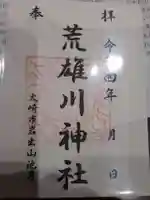 奉拝
令和四年 月 日
荒雄川神社
大崎市岩出山池月